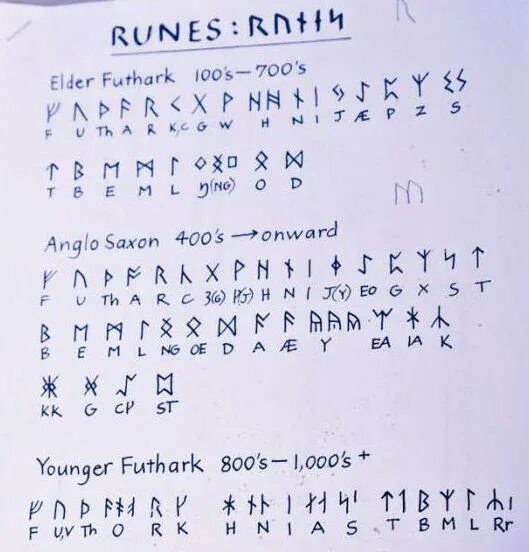 RUNES : ᚱᚢᚾᛁᛋ
Elder Futhark 100's — 700's
ᚠ ᚢ ᚦ ᚨ ᚱ ᚲ ᚷ ᚹ ᚺᚻ ᚾ ᛁ ᛃ ᛇ ᛈ ᛉ ᛊᛋ
F U Th A R K,C G W H N I J Æ P Z S
ᛏ ᛒ ᛖ ᛗ ᛚ ᛜᛝ□ ᛟ ᛞ
T B E M L Ŋ(NG) O D
Anglo Saxon 400's → onward
ᚠ ᚢ ᚦ ᚩ ᚱ ᚳ ᚷ ᚹ ᚻ ᚾ ᛁ ᛄ ᛇ ᛈ ᛉ ᛋ ᛏ
F U Th A R C 3(G) H N I J(Y) EO G X S T
ᛒ ᛖ ᛗ ᛚ ᛝ ᛟ ᛞ ᚪ ᚫ ᚣᚣᚣ ᛠ ᛡ ᛣ
B E M L NG OE D A Æ Y EA IA K
ᛤ ᚸ ᛢ ᛥ
KK G CP ST
Younger Futhark 800's — 1,000's +
ᚠ ᚢ ᚦ ᚬᚯᚭ ᚱ ᚴ ᚼ ᚾᚿ ᛁ ᛅᛆ ᛋᛌ ᛏᛐ ᛒ ᛘ ᛚ ᛦᛧ
F U,V Th O R K H N I A S T B M L Rr